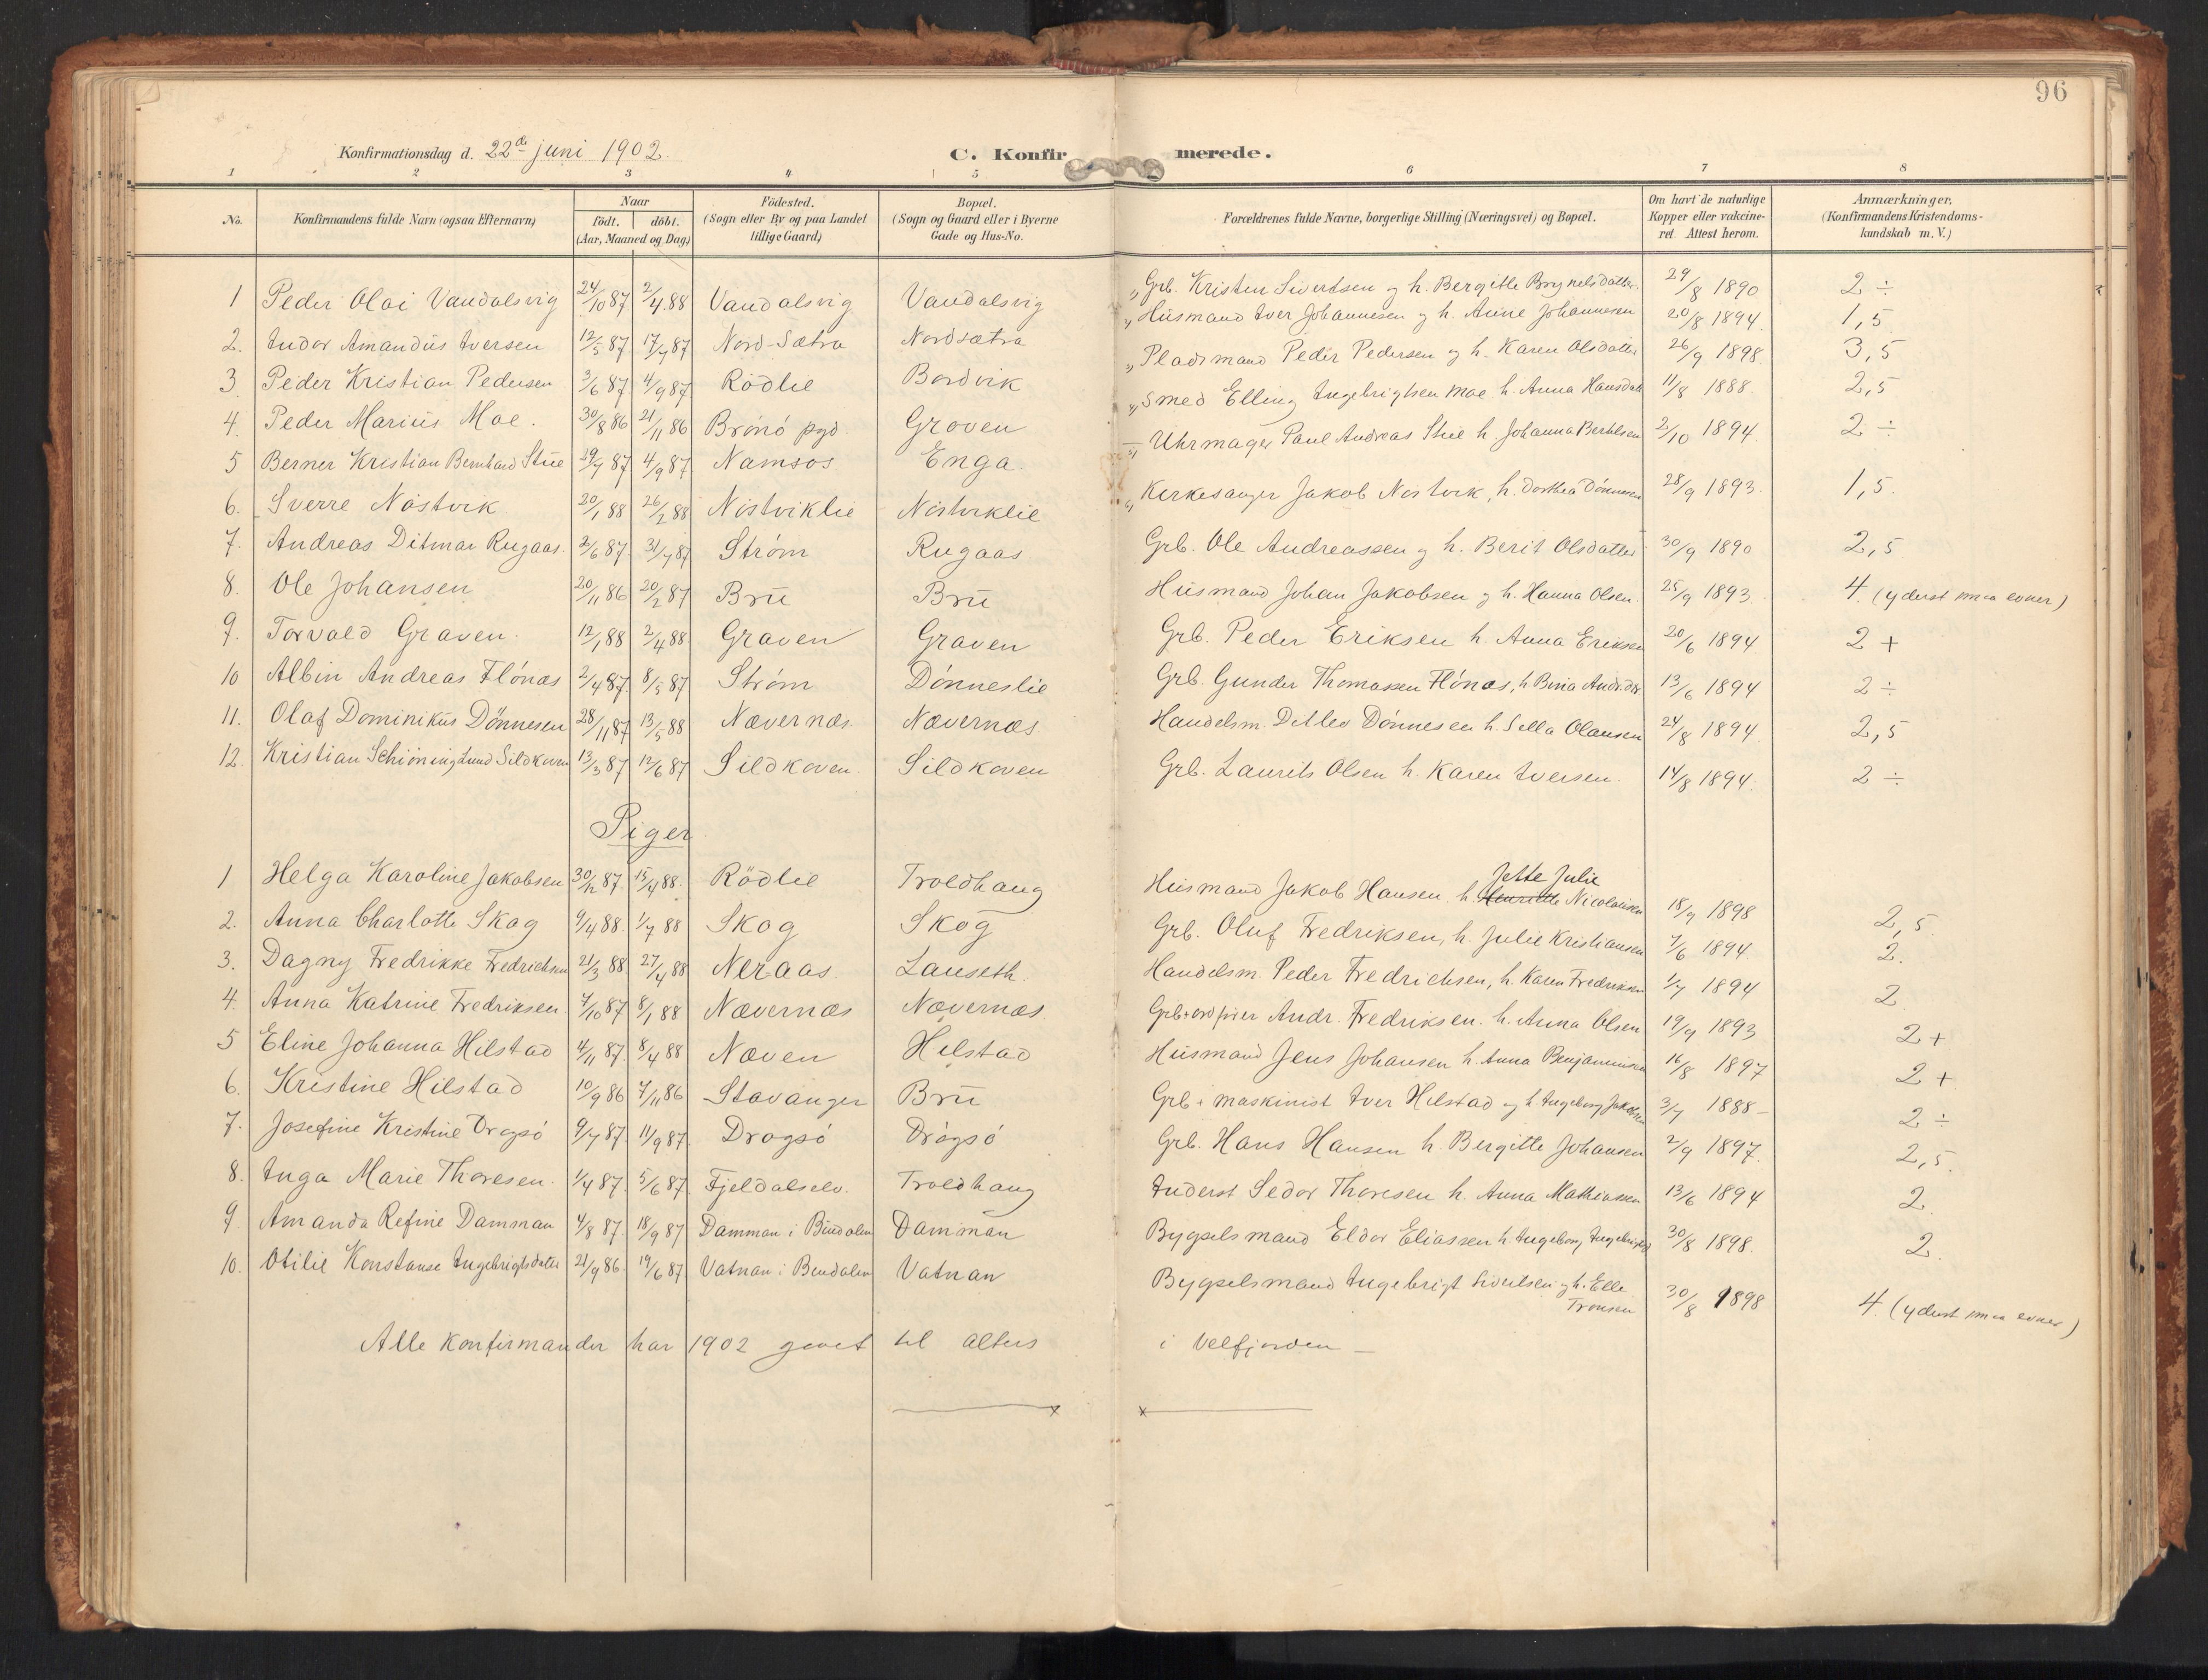 96
Konfirmationsdag d. 22de juni 1902.
C. Konfirmerede.
1 2 3 4 5 6 7 8
No. Konfirmandens fulde Navn (ogsaa Efternavn) Naar födt. döbt. (Aar, Maaned og Dag) Födested. (Sogn eller By og paa Landet tillige Gaard) Bopæl. (Sogn og Gaard eller i Byerne Gade og Hus-No. Forældrenes fulde Navne, borgerlige Stilling (Næringsvei) og Bopæl. Om havt de naturlige Kopper eller vakcineret. Attest herom. Anmærkninger, (Konfirmandens Kristendomskundskab m. V.)
1 Peder Olai Vandalsvig 24/10 87 2/4 88 Vandalsvig Vandalsvig " Grb. Kristen Sivertsen og h. Bergitte Brynelsdatter. 29/8 1890 2 ÷
2. Indor Amandus Iversen 12/5 87 17/7 87 Nord-Sætra Nordsætra " Husmand Iver Johannesen og h. Anne Johannesen 20/8 1894. 1,5
3 Peder Kristian Pedersen 3/6 87 4/9 87 Rödlie Bordvik " Pladsmand Peder Pedersen og h. Karen Olsdatter 26/9 1898. 3,5
4. Peder Marius Moe. 30/8 86 21/11 86 Brönö pgd. Groven " Smed Elling Ingebrigtsen Moe h. Anna Hansdatt 11/8 1888. 2,5
5 Berner Kristian Bernhard Stue 29/7 87 4/9 87 Namsos Enga. " Uhrmager Paul Andreas Stue h. Johanna Berntsen 2/10 1894. 2 ÷
6. Sverre Nöstvik 20/1 88 26/2 88 Nöstviklie Nöstviklie " Kirkesanger Jakob Nöstvik, h. Dorthea Dönnesen 28/9 1893. 1,5.
7. Andreas Ditmar Rugaas. 2/6 87. 31/7 87 Ström Rugaas Grb. Ole Andreassen og h. Berit Olsdatter 30/9 1890 2,5
8. Ole Johansen 20/11 86 20/2 87 Bru Bru Husmand Johan Jakobsen og h. Hanna Olsen. 25/9 1893 4. (yderst smaa evner)
9. Torvald Graven. 12/1 88 2/4 88 Graven Graven Grb. Peder Eriksen h. Anna Eriksen 20/6 1894 2 +
10 Albin Andreas Flönæs 2/4 87. 8/5 87 Ström Dönneslie Grb. Gunder Thomassen Flönæs, h Bina Andr.dtr 13/6 1894 2 ÷
11. Olaf Dominikus Dönnesen 28/11 87 13/5 88 Nævernæs Nævernæs Handelsm. Detlev Dönnesen h. Sella Olausen 24/8 1894. 2,5
12. Kristian Schiöning Lund Sildkoven 13/3 87 12/6 87 Sildkoven. Sildkoven Grb. Laurits Olsen h. Karen Iversen. 14/8 1894. 2 ÷
Piger.
1 Helga Karoline Jakobsen 30/12 87. 15/4 88. Rödlie Troldhaug Husmand Jakob Hansen h. Henriette Jette Julie Nicolaisen 18/9 1898 2,5.
2. Anna Charlotte Skog 9/4 88. 1/7 88 Skog Skog Grb. Oluf Fredriksen, h. Julie Kristiansen 7/6 1894 2.
3. Dagny Fredrikke Fredrichsen 21/3 88 27/4 88 Neraas. Lauseth. Handelsm. Peder Fredrichsen, h. Karen Fredriksen 1/7 1894 2
4. Anna Katrine Fredriksen. 7/10 87 8/1 88 Nævernæs Nævernæs. Grb + ordfører Andr. Fredriksen. h. Anna Olsen 19/9 1893 2 +
5 Eline Johanna Hilstad 4/11 87. 8/4 88 Næven Hilstad Husmand Jens Johansen h. Anna Benjaminsen 16/8 1897 2 +
6. Kristine Hilstad 10/9 86 7/11 86 Stavanger Bru Grb + maskinist Iver Hilstad og h. Ingeborg Jakobsen 3/7 1888 – 2 ÷
7. Josefine Kristine Dragsö 9/7 87. 11/9 87 Dragsö Drågsö Grb. Hans Hansen h. Bergitte Johansen 2/9 1897. 2,5.
8. Inga Marie Thoresen. 1/4 87. 5/6 87. Fjeldalselv. Troldhaug Inderst Sedor Thoresen h. Anna Mathiassen 13/6 1894 2.
9. Amanda Refine Damman 4/8 87. 18/9 87 Damman i Bindalen Damman Bygselsmand Eldor Eliassen h. Ingeborg Ingebrigtsd 30/8 1898. 2.
10. Otilie Konstanse Ingebrigtsdatter 21/9 86. 19/6 87. Vatnan i Bindalen Vatnan Bygselsmand Ingebrigt Sivertsen og h. Elle Tronsen 30/8 1898 4. (yderst smaa evner)
Alle konfirmander har 1902 gaaet til alters i Velfjorden –